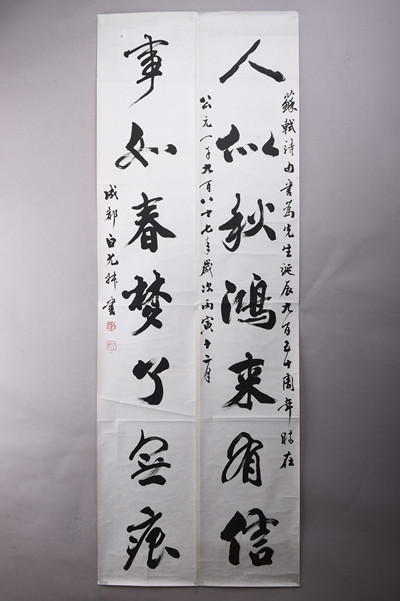 蘇軾詩句書為先生誕辰九百五十周年時在
人似秋鴻来有信
公元一千九百八十七年歲次丙寅十二月
事如春梦了無痕
成都白允叔書